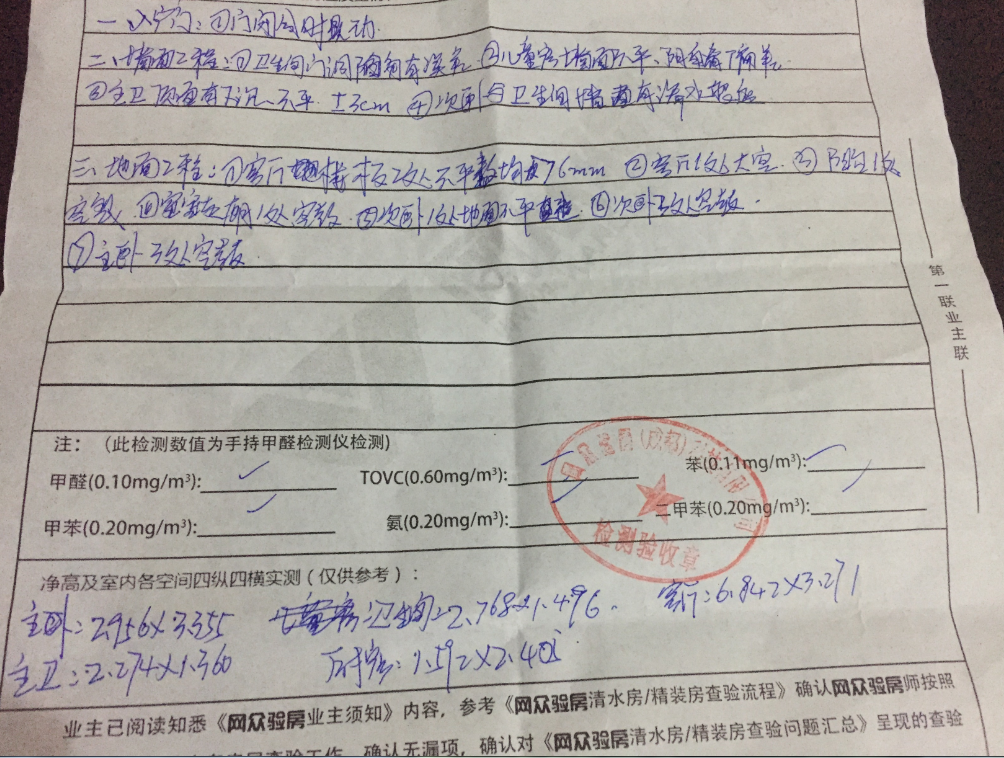 一、入户门:①门闭合时摆动.
二、墙面工程:①卫生间门洞阴角有误差 ②儿童房墙面不平、阳角
③主卫顶面有下沉、不平 ±3cm ④次卧与卫生间墙面有渗水
三、地面工程:①客厅楼板2处不平 76mm ②客厅1处大空. ③ 1处
空鼓 ④ 1处空鼓 ⑤次卧1处地面不平 ⑥次卧 处空鼓.
⑦主卧3处空鼓
第一联业主联
注:(此检测数值为手持甲醛检测仪检测)
甲醛(0.10mg/m³): ✓ TOVC(0.60mg/m³): ✓ 苯(0.11mg/m³): ✓
甲苯(0.20mg/m³): ✓ 氨(0.20mg/m³): ✓ 二甲苯(0.20mg/m³): ✓
检测验收章
净高及室内各空间四纵四横实测(仅供参考):
主卧:2.956×3.355 卫生间:2.768×1.496. 客厅:6.842×3.271
主卫:2.274×1.360 1.592×2.40
业主已阅读知悉《网众验房业主须知》内容,参考《网众验房清水房/精装房查验流程》确认网众验房师按照
确认无漏项,确认对《网众验房清水房/精装房查验问题汇总》呈现的查验